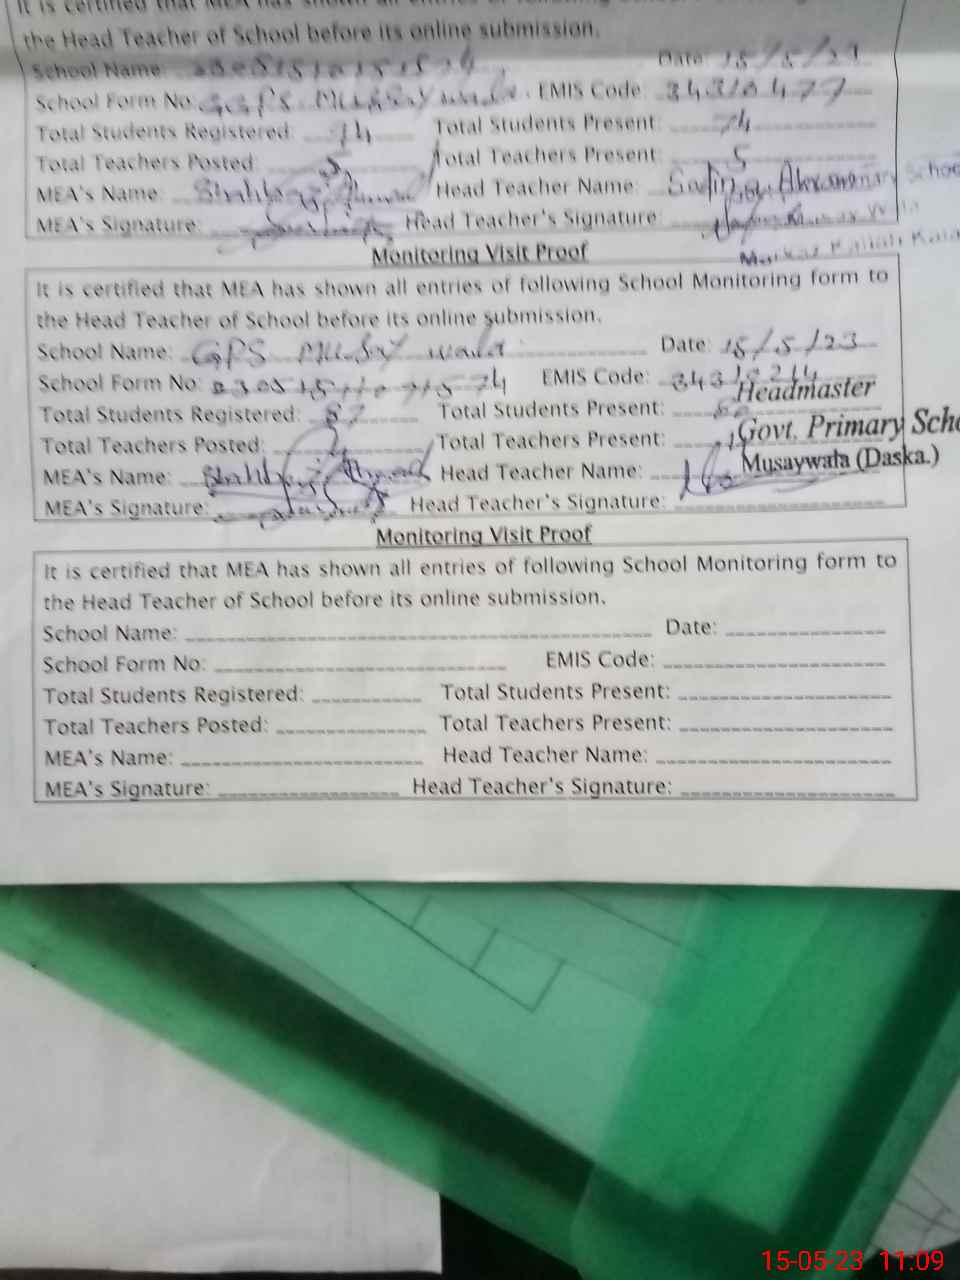 It is certified that MEA has shown all entries of following School Monitoring form to
the Head Teacher of School before its online submission.
School Name: Date: 15/5/23
School Form No: GGPS Mussay wala EMIS Code: 34310477
Total Students Registered: 74 Total Students Present: 74
Total Teachers Posted: 5 Total Teachers Present: 5
MEA's Name: Shahbaz Ahmad Head Teacher Name: School
MEA's Signature: Head Teacher's Signature:
Markaz
Monitoring Visit Proof
It is certified that MEA has shown all entries of following School Monitoring form to
the Head Teacher of School before its online submission.
School Name: GPS Mussay wala Date: 15/5/23
School Form No: EMIS Code: 34310214
Headmaster
Total Students Registered: 87 Total Students Present:
Govt. Primary Scho
Total Teachers Posted: 2 Total Teachers Present:
Musaywala (Daska.)
MEA's Name: Shahbaz Ahmad Head Teacher Name:
MEA's Signature: Head Teacher's Signature:
Monitoring Visit Proof
It is certified that MEA has shown all entries of following School Monitoring form to
the Head Teacher of School before its online submission.
School Name: Date:
School Form No: EMIS Code:
Total Students Registered: Total Students Present:
Total Teachers Posted: Total Teachers Present:
MEA's Name: Head Teacher Name:
MEA's Signature: Head Teacher's Signature:
15-05-23 11:09